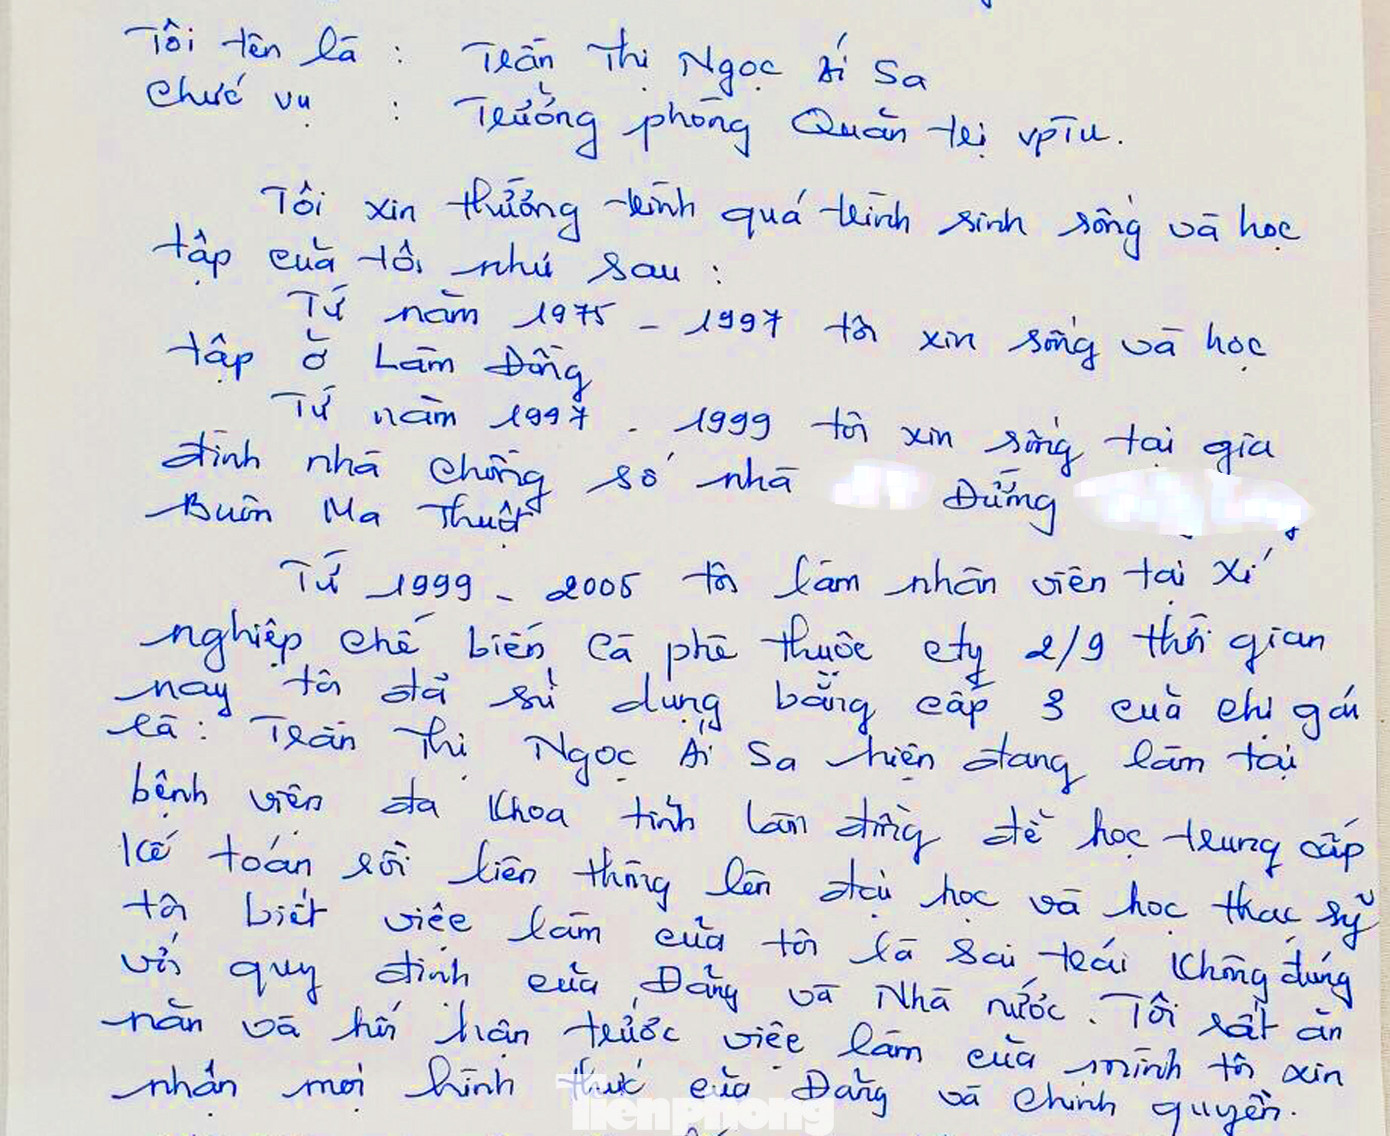 Tôi tên là : Trần Thị Ngọc Ái Sa
Chức vụ : Trưởng phòng Quản trị VPTU.
Tôi xin tường trình quá trình sinh sống và học
tập của tôi như sau :
Từ năm 1975 - 1997 tôi xin sống và học
tập ở Lâm Đồng
Từ năm 1997 - 1999 tôi xin sống tại gia
đình nhà chồng số nhà Đường
Buôn Ma Thuột
Từ 1999 - 2005 tôi làm nhân viên tại Xí
nghiệp chế biến cà phê thuộc cty 2/9 thời gian
nay tôi đã sử dụng bằng cấp 3 của chị gái
là : Trần Thị Ngọc Ái Sa hiện đang làm tại
bệnh viện đa khoa tỉnh Lâm đồng để học trung cấp
kế toán rồi liên thông lên đại học và học thạc sỹ
tôi biết việc làm của tôi là sai trái không đúng
với quy định của Đảng và Nhà nước. Tôi rất ăn
năn và hối hận trước việc làm của mình tôi xin
nhận mọi hình thức của Đảng và chính quyền.
Tienphong